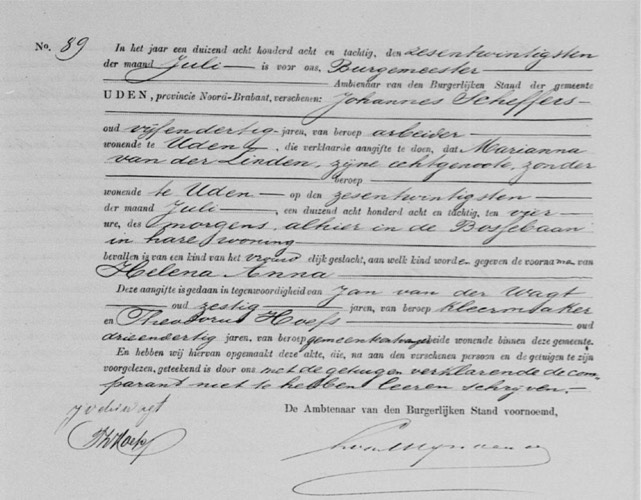 No. 89 In het jaar een duizend acht honderd acht en tachtig, den zesentwintigsten
der maand Juli is voor ons, Burgemeester
Ambtenaar van den Burgerlijken Stand der gemeente
UDEN, provincie Noord-Brabant, verschenen: Johannes Scheffers
oud vijfendertig jaren, van beroep arbeider
wonende te Uden, die verklaarde aangifte te doen, dat Marianna
van der Linden, zijne echtgenoote, zonder
beroep
wonende te Uden op den zesentwintigsten
der maand Juli, een duizend acht honderd acht en tachtig, ten vier
ure, des morgens, alhier in de Bosschebaan
in hare woning
bevallen is van een kind van het vrouwelijk geslacht, aan welk kind worde gegeven de voorname van
Helena Anna
Deze aangifte is gedaan in tegenwoordigheid van Jan van der Wagt
oud zestig jaren, van beroep kleermaker
en Theodorus Hoefs oud
drieendertig jaren, van beroep beide wonende binnen deze gemeente.
En hebben wij hiervan opgemaakt deze akte, die, na aan den verschenen persoon en de getuigen te zijn
voorgelezen, geteekend is door ons met de getuigen verklarende de com-
parant niet te hebben leeren schrijven.
De Ambtenaar van den Burgerlijken Stand voornoemd,